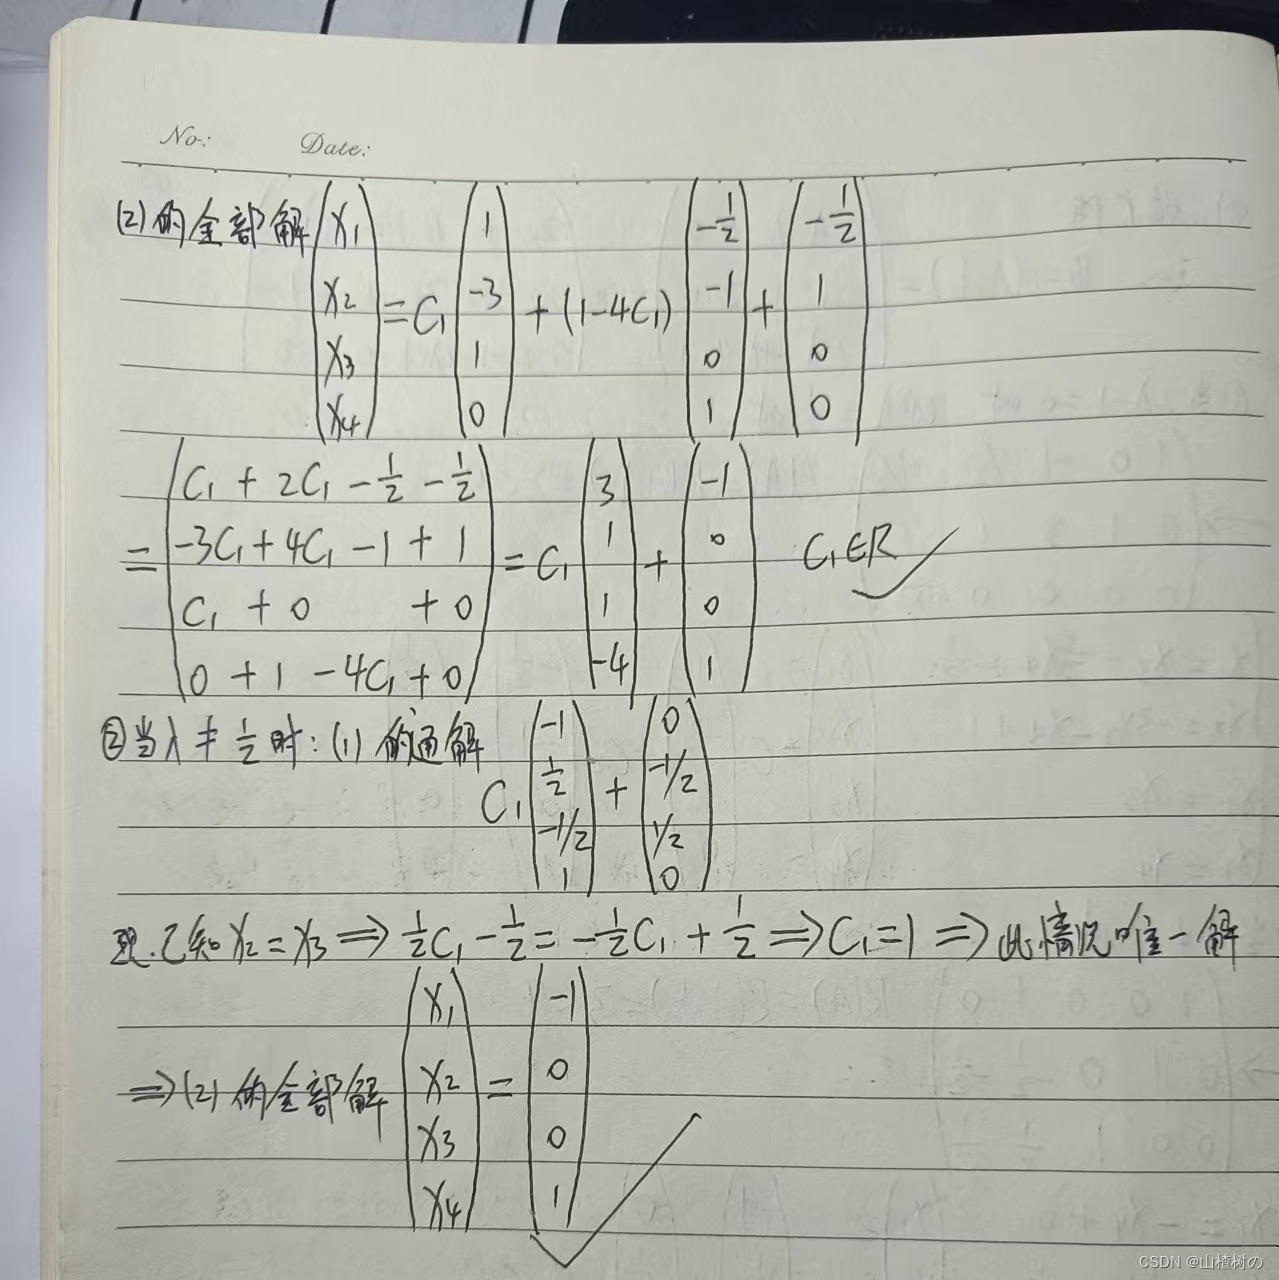 No: Date:
(2)的全部解 (x₁ x₂ x₃ x₄) = C₁ (1 -3 1 0) + (1-4C₁) (-1/2 -1 0 1) + (-1/2 1 0 0)
= (C₁ + 2C₁ - 1/2 - 1/2
-3C₁ + 4C₁ - 1 + 1
C₁ + 0 + 0
0 + 1 - 4C₁ + 0) = C₁ (3 1 1 -4) + (-1 0 0 1) C₁∈R ✓
②当λ ≠ 1/2 时: (1) 的通解
C₁ (-1 1/2 -1/2 1) + (0 -1/2 1/2 0)
现.已知 x₂ = x₃ ⇒ 1/2 C₁ - 1/2 = -1/2 C₁ + 1/2 ⇒ C₁ = 1 ⇒ 此情况唯一解
⇒ (2) 的全部解 (x₁ x₂ x₃ x₄) = (-1 0 0 1) ✓
CSDN @山楂树の